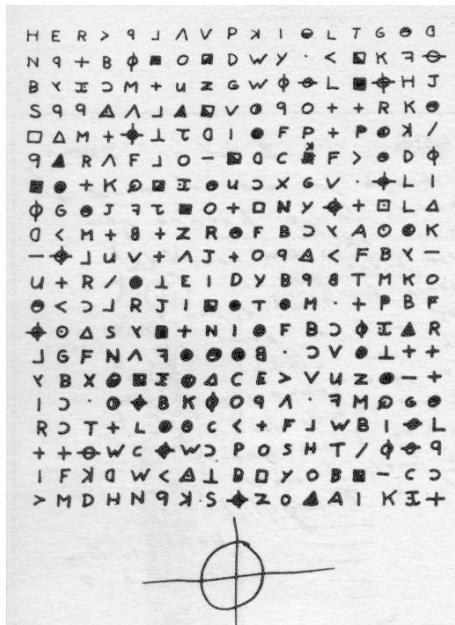 H E R > ꟼ ⅃ Λ V P ꓘ I ◐ L T G ◉ ᗡ
N ꟼ + B ⌽ ■ O ◪ D W Y · < ◩ K ꟻ ⊖
B Y I Ɔ M + U Z G W ⌽ ⊖ L ■ ⌖ H J
S ꟼ ꟼ ◬ Λ ⅃ ▲ ◪ V ◒ ꟼ O + + R K ◉
□ △ M + ⌖ ⊥ Ʇ ᗡ I ● F P + P ◕ ꓘ /
ꟼ ▲ R Λ F ⅃ O – ◪ ᗡ C ■ F > ◉ D ⌽
■ ● + K ⵕ ◪ I ◉ U Ɔ X G V · ⌖ L I
⌽ G ◉ J ꟻ Ʇ ■ O + □ N Y ⌖ + ⊡ L △
ᗡ < M + 8 + Z R ◉ F B Ɔ Y A ⊙ ◕ K
– ⌖ ⅃ U V + Λ J + O ꟼ ◬ < F B Y –
U + R / ● ⊥ E I D Y B ꟼ 8 T M K O
◉ < Ɔ ⅃ R J I ◪ ● T ◕ M · + P B F
⌖ ⊙ △ S Y ■ + N I ● F B Ɔ ⌽ I ▲ R
⅃ G F N Λ ꟻ ● ◉ ◕ 8 · Ɔ V ◕ ⊥ + +
Y B X ◐ ◪ I ◕ △ C E > V U Z ● – +
I Ɔ · ◒ ⌖ B K ⌽ O ꟼ Λ · ꟻ M ⵕ G ◉
R Ɔ T + L ◐ ⊙ C < + F ⅃ W B I ⊖ L
+ + ⊖ W C ⌖ W Ɔ P O S H T / ⌽ ⊖ ꟼ
I F ꓘ ᗡ W < ◬ ⊥ B □ Y O B ◪ – C Ɔ
> M D H N ꟼ ꓘ · S ⌖ Z O ▲ A I K I +